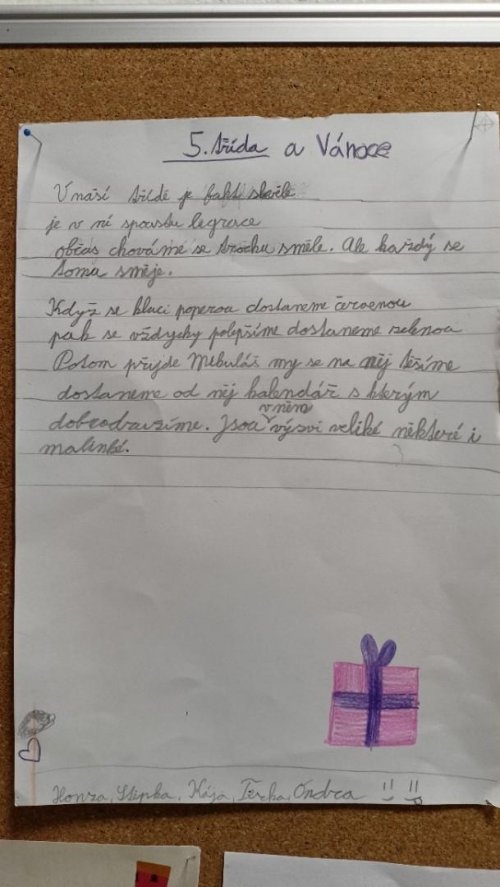 5. třída a Vánoce
V naší třídě je fakt skvěle
je v ní spoustu legrace
občas chováme se trochu směle. Ale každý se
tomu směje.
Když se kluci poperou dostaneme červenou
pak se vždycky polepšíme dostaneme zelenou
Potom přijde Mikuláš my se na něj těšíme
dostaneme od něj kalendář s kterým
v něm
dobrodružíme. Jsou výzvi veliké některé i
malinké.
Honza, Štěpka, Kája, Terka, Ondra